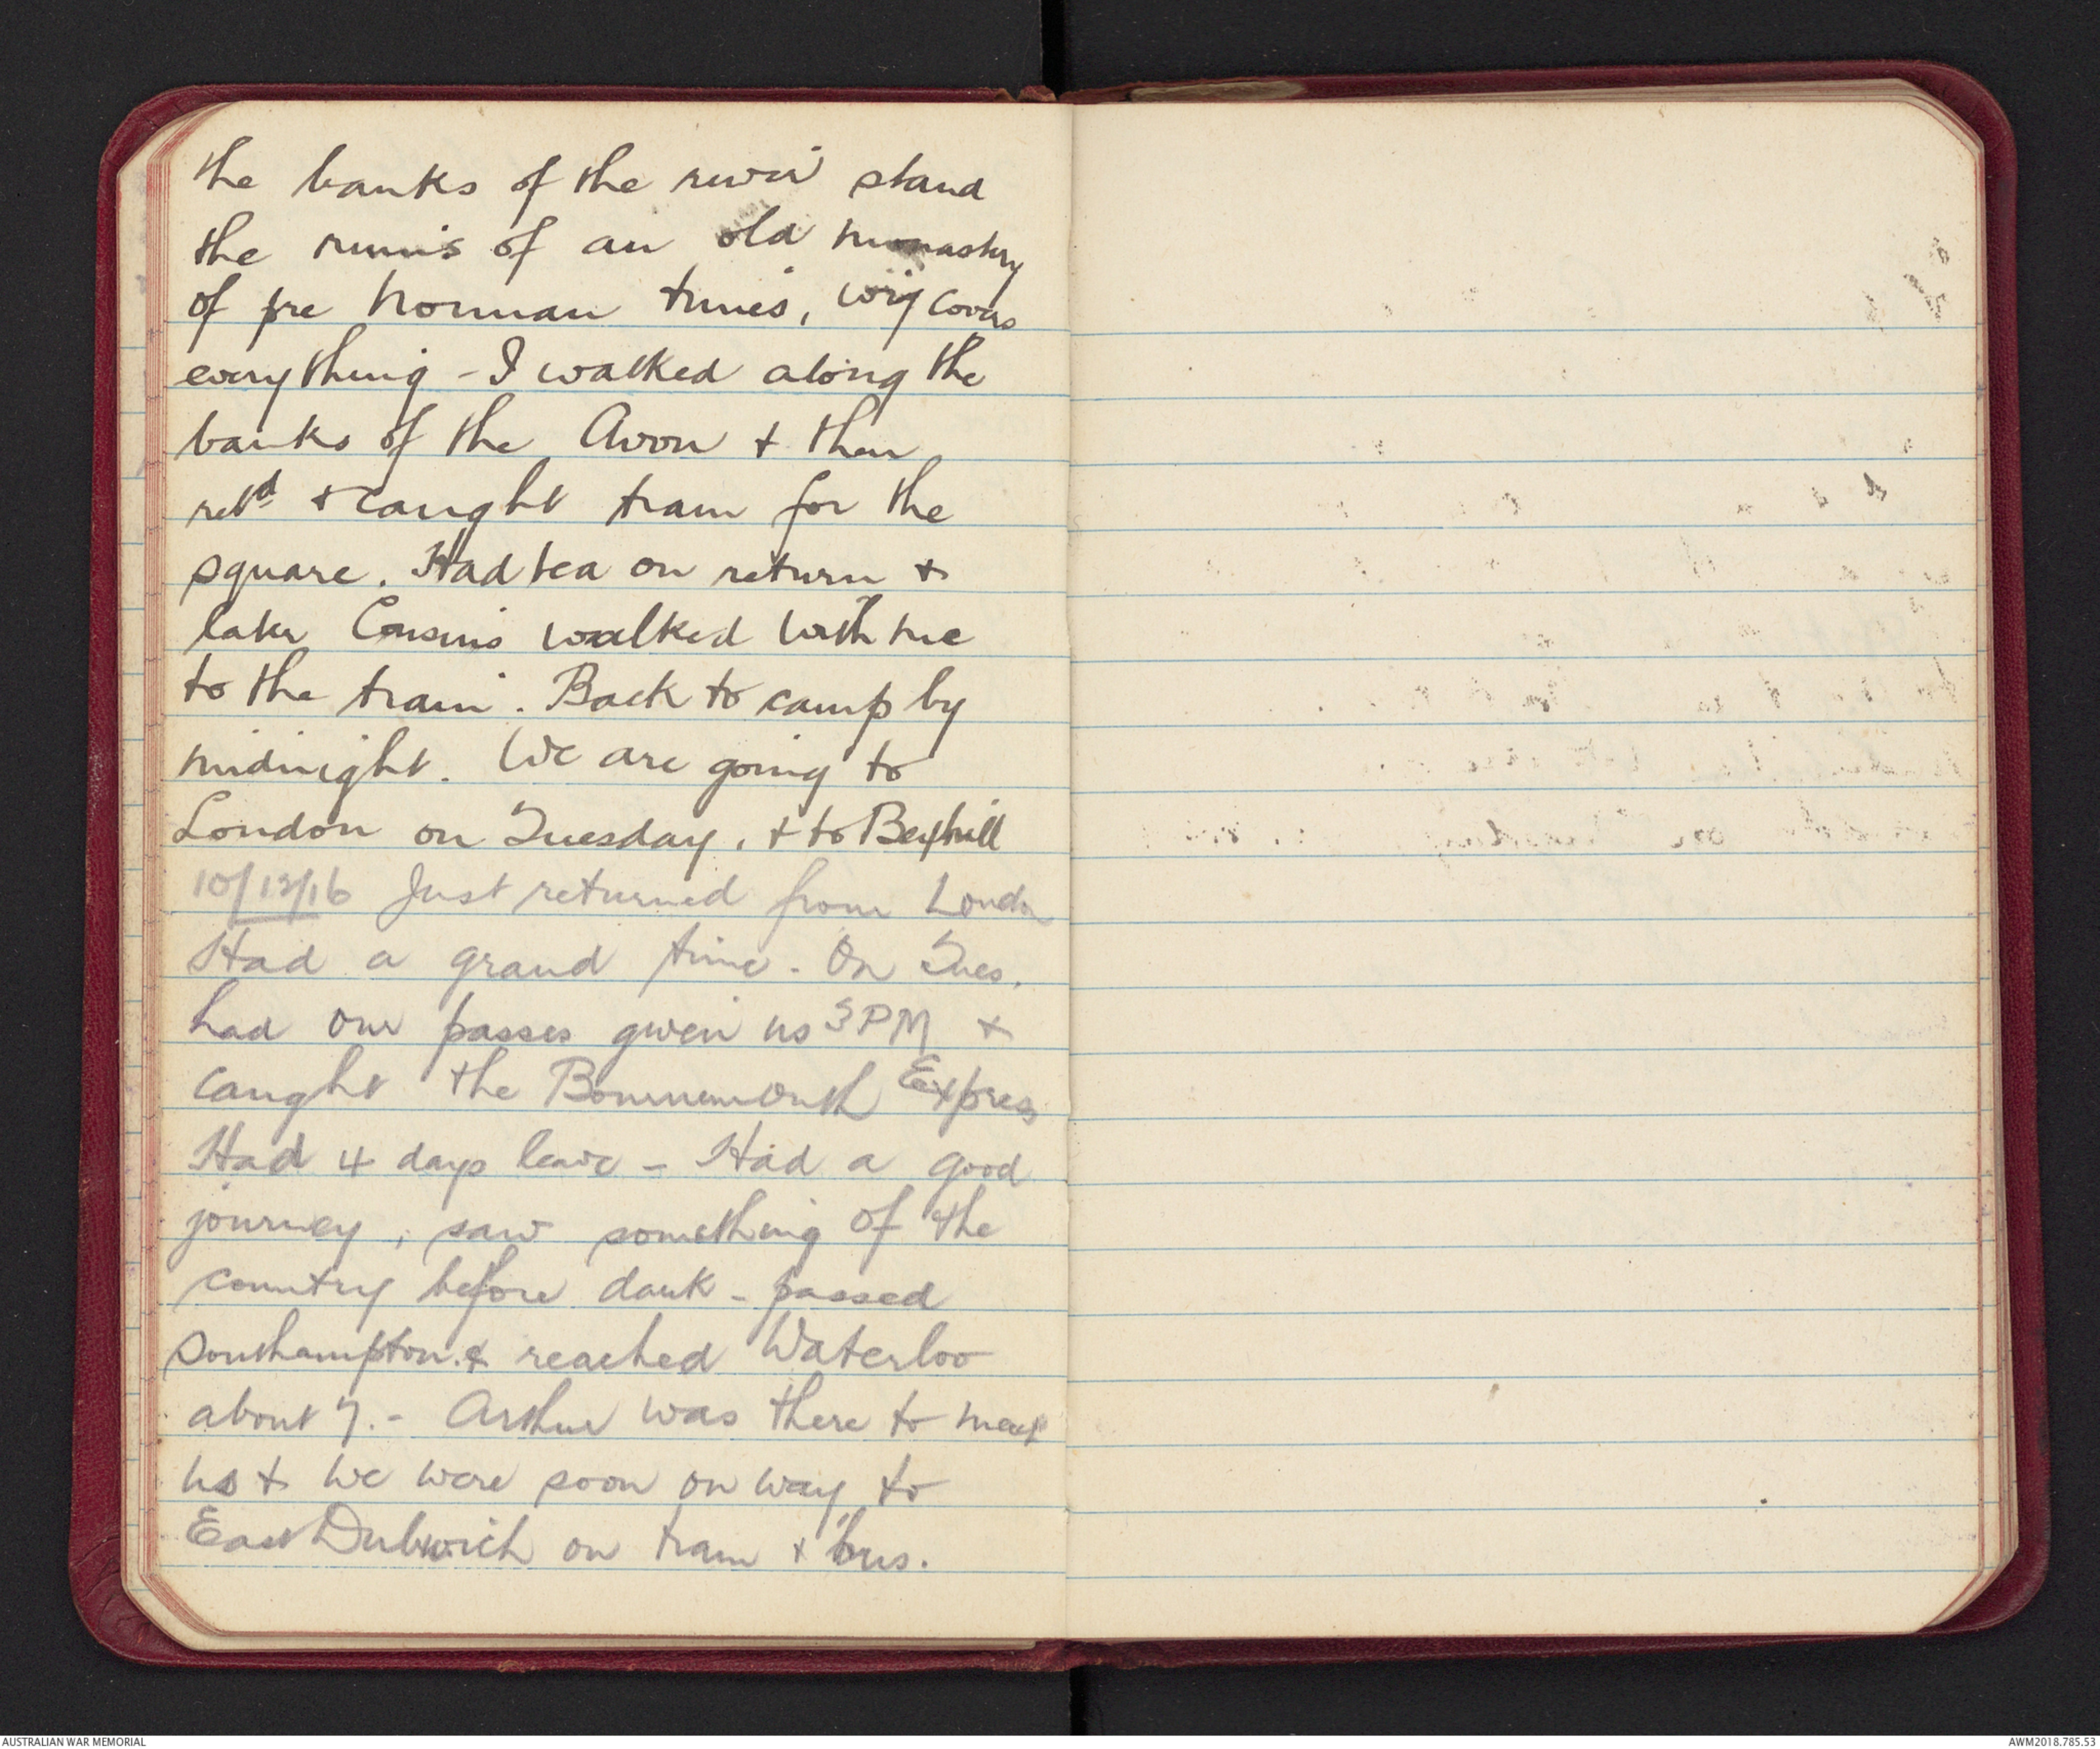 the banks of the river stand
the ruins of an old monastery
of pre Norman times, ivy covers
everything - I walked along the
banks of the Avon + then
retd + caught tram for the
square. Had tea on return +
later Cousins walked with me
to the train. Back to camp by
midnight. We are going to
London on Tuesday, + to Bexhill
10/12/16 Just returned from London
Had a grand time. On Tues.
had our passes given us 3PM +
caught the Bournemouth Express
Had 4 days leave - Had a good
journey, saw something of the
country before dark - passed
Southampton & reached Waterloo
about 7. - Arthur was there to meet
us + we were soon on way to
East Dulwich on tram + 'bus.
AUSTRALIAN WAR MEMORIAL
AWM2018.785.53